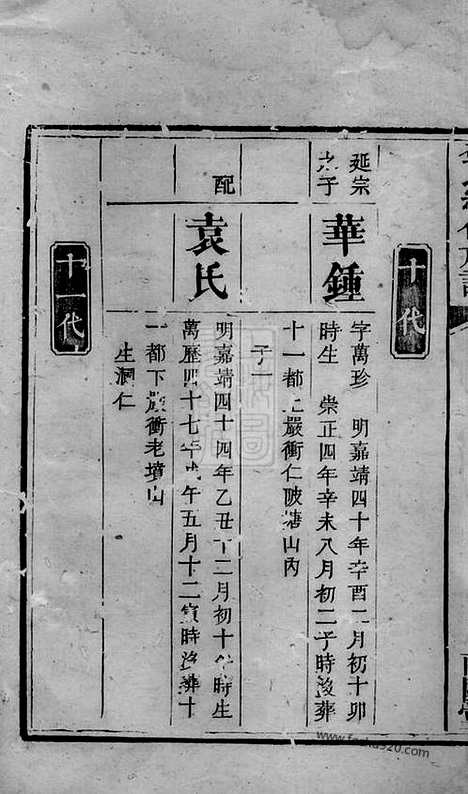 十代
延宗
之子
華鍾
字萬珍 明嘉靖四十年辛酉二月初十卯
時生 崇正四年辛未八月初二子時歿葬
十一都上嚴衝仁陂塘山內
子一
配
袁氏
明嘉靖四十四年乙丑十二月初十 時生
萬歷四十七年 午五月十二寅時歿葬十
一都下嚴衝老墳山
生洞仁
十一代